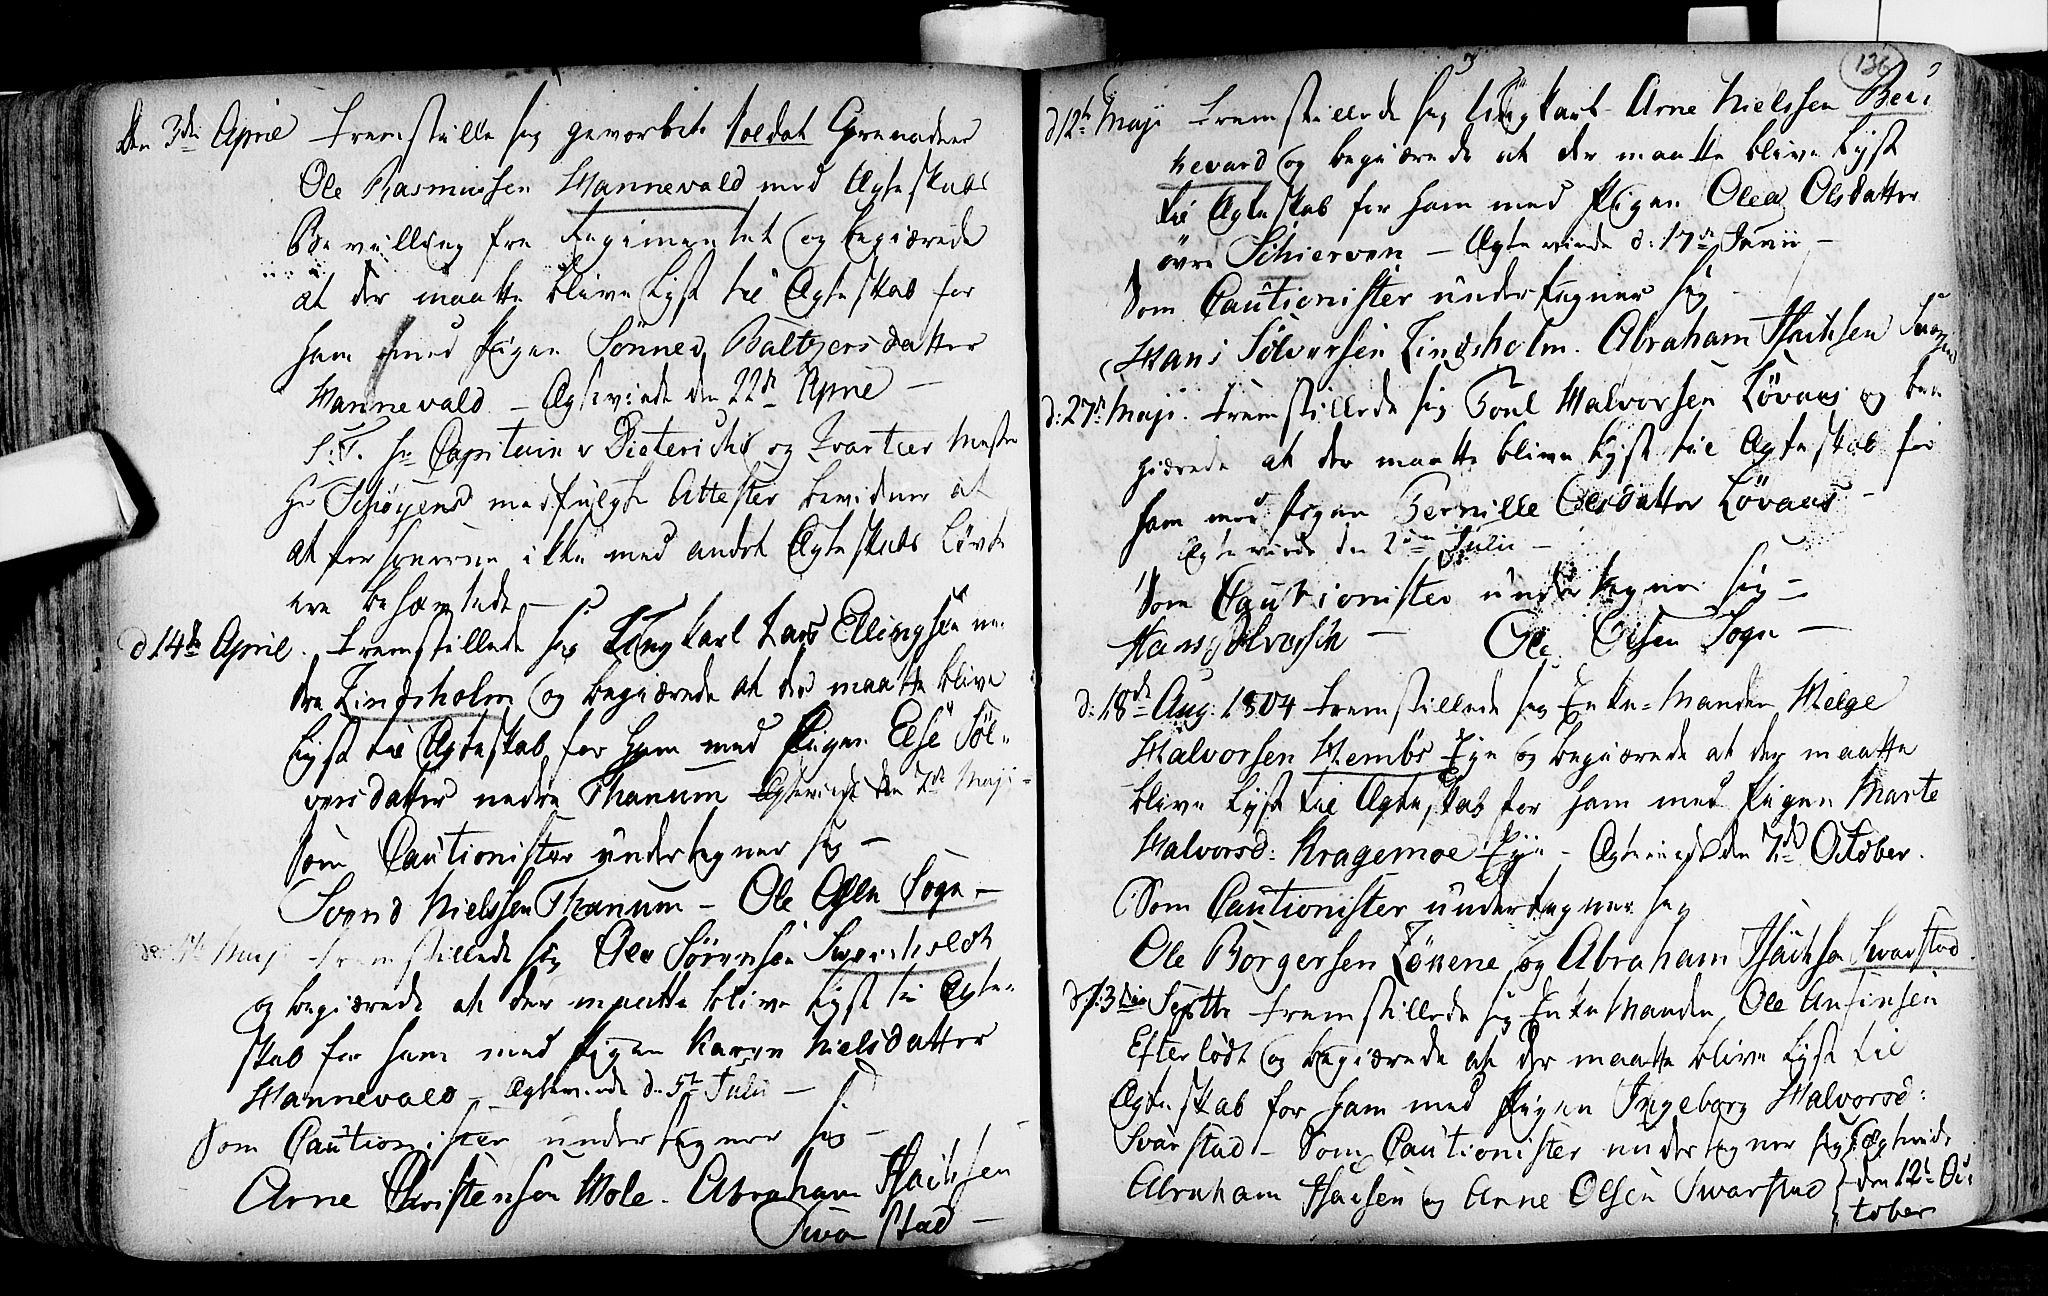 den 3die April fremstillede sig gevorbet Soldat Grenadeer
Ole Rasmussen Hannevald med Ægteskabs
Bevilling fra Regimentet og begiærede
at der maatte blive lyst til Ægteskab for
ham med Pigen Baltzersdatter
Hannevald – Ægteviede den 22de April –
S: T. Hr Capitain v Dieterichs og Qvarteer Mester
Hr Schøyens medfulgte Attester bevidner at
at forhen ikke med andet Ægteskabs Løvte
ere behæftede –
d 14de April. fremstillede sig Ungkarl Lars Ellingsen ne¬
dre Lindsholm og begiærede at der maatte blive
lyst til Ægteskab for ham med Pigen Else Søl¬
versdatter nedre Thanum Ægteviede den 7de Maji –
Som Cautionister undertegner sig –
Svend Nielssen Thanum – Ole Olsen Sogn –
Maji fremstillede sig Ole Sørensen
og begiærede at der maatte blive lyst til Ægte¬
skab for ham med Pigen Karen Nielsdatter
Hannevald – Ægteviede d: 5te Julii –
Som Cautionister undertegner sig –
Arne Christensen Hole. Abraham Isachsen
Svarstad –
136
d 12te Maji fremstillede sig Ungkarl Arne Nielssen Ber¬
kevard og begiærede at der maatte blive lyst
til Ægteskab for ham med Pigen Olea Olsdatter
øvre Schierven – Ægteviede d: 17de Junii –
Som Cautionister undertegner sig –
Hans Sølversen Lindsholm. Abraham Isachsen
d: 27de Maji. fremstillede sig Poul Halvorsen Løvaas og be¬
giærede at der maatte blive lyst til Ægteskab for
ham med Pigen Pernille Olesdatter Løvaas –
Ægteviede den Julii –
Som Cautionister undertegner sig –
Hans Sølversen – Ole Olsen Sogn –
d: 18de Aug: 1804 fremstillede sig Enke=Manden Helge
Halvorsen Hembs Eye og begiærede at der maatte
blive lyst til Ægteskab for ham med Pigen Marte
Halvorsd: Kragemoe Eye – Ægteviede den 7de October.
Som Cautionister undertegner sig
Ole Borgersen Løkene og Abraham Isachsen Svarstad.
Septbr fremstillede sig Enke Manden Ole Anfinsen
Efterlødt og begiærede at der maatte blive lyst til
Ægteskab for ham med Pigen Ingeborg Halvorsd:
Svarstad – Som Cautionister undertegner sig Ægteviede
Abraham Isacsen og Arne Olsen Svarstad den 12te Oc¬
tober